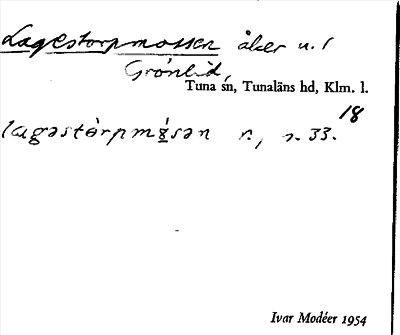 Lagestorpmossen åker u. 1
Grönlid,
Tuna sn, Tunaläns hd, Klm. l.
18
lagəstòrpmåsən n., s. 33.
Ivar Modéer 1954